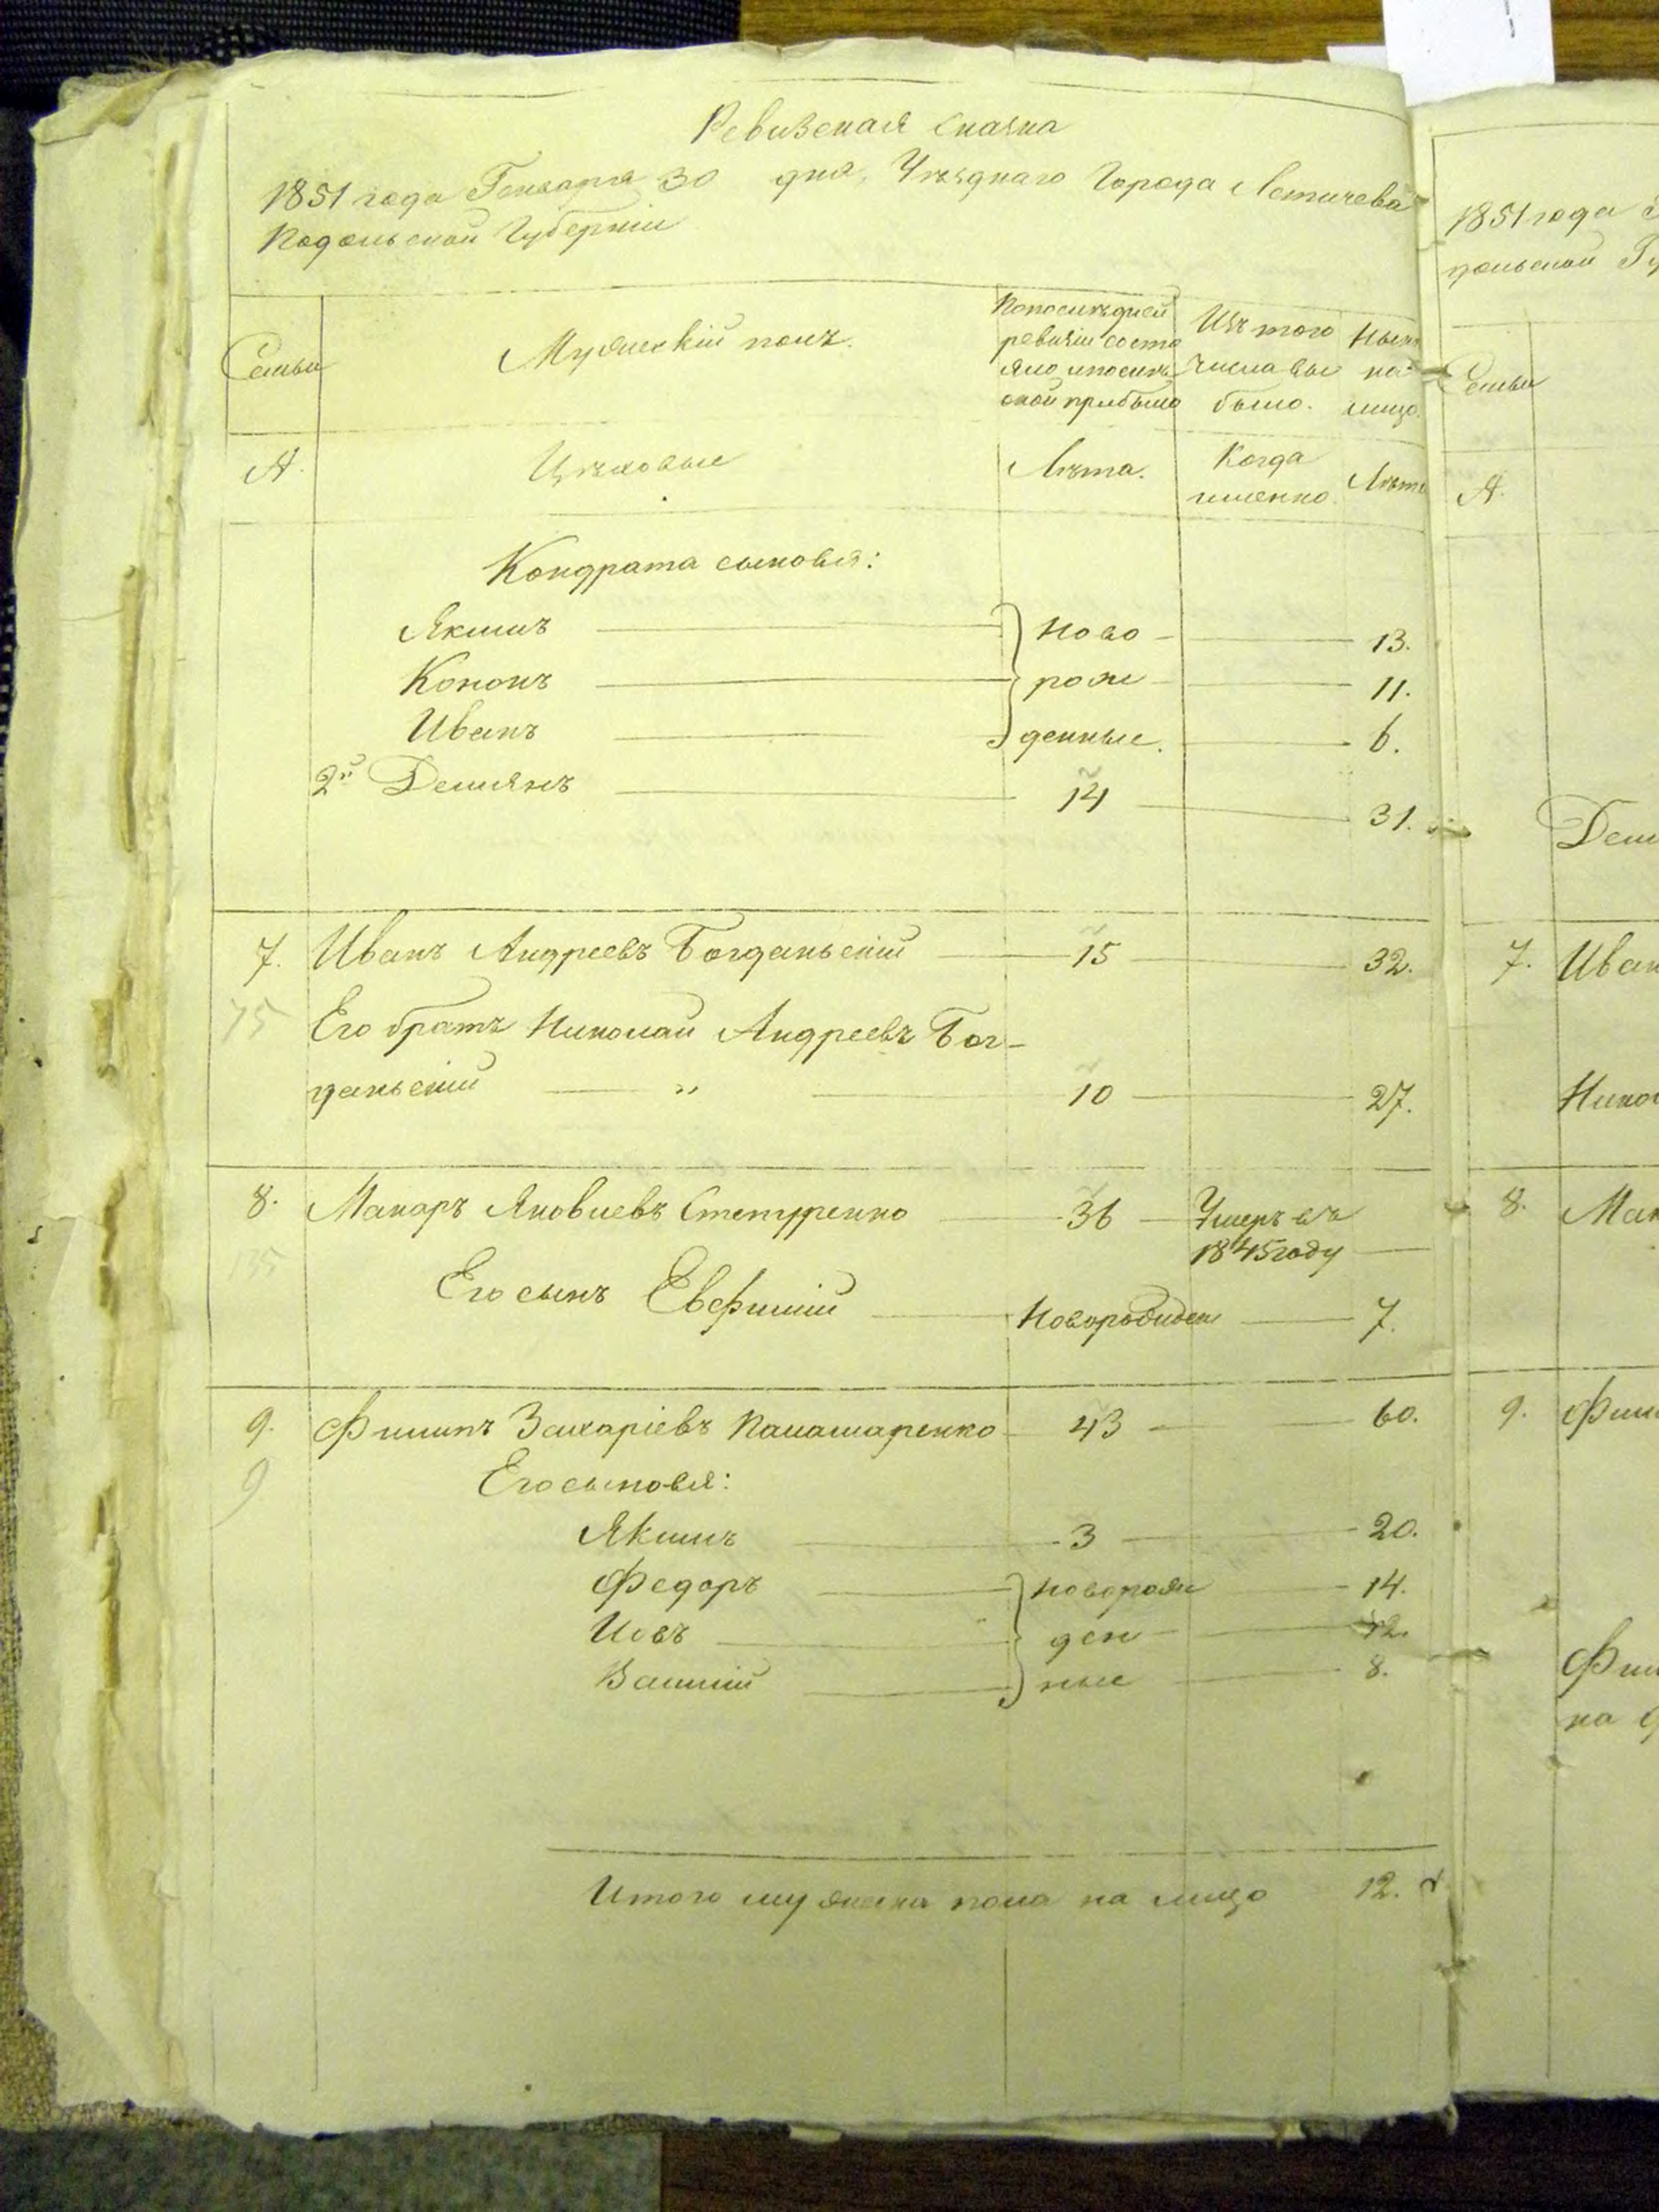 Ревизская сказка
1851 года Генваря 30 дня, Уезднаго Города Летичева
Подольской Губерніи
Семьи
Мужескій полъ.
По последней
ревизіи состо
яло и после
оной прибыло
Изъ того
числа вы
было.
Ныне
на
лицо.
А.
Цеховые
Лѣта.
Когда
именно.
Лѣта
Кондрата сыновья:
Якимъ 13.
Кононъ 11.
Иванъ 6.
Ново
рож
денные.
2й Демянъ 14 31.
7. Иванъ Андреевъ Богданьскій 15 32.
75 Его братъ Николай Андреевъ Бог-
даньскій „ 10 27.
8. Макаръ Яковлевъ 36 Умеръ въ
1845 году
135
Его сынъ Евфимій Новорожден 7.
9. Филипъ Захаріевъ Паламаренко 43 60.
9 Его сыновья:
Якимъ 3 20.
Федоръ новорож 14.
Иовъ ден 12.
Василій ные 8.
Итого мужеска пола на лицо 12.
1851 года
дольской Гу
Семьи
А.
Дем
7. Иван
Никол
8. Мак
9. Фили
Фили
на